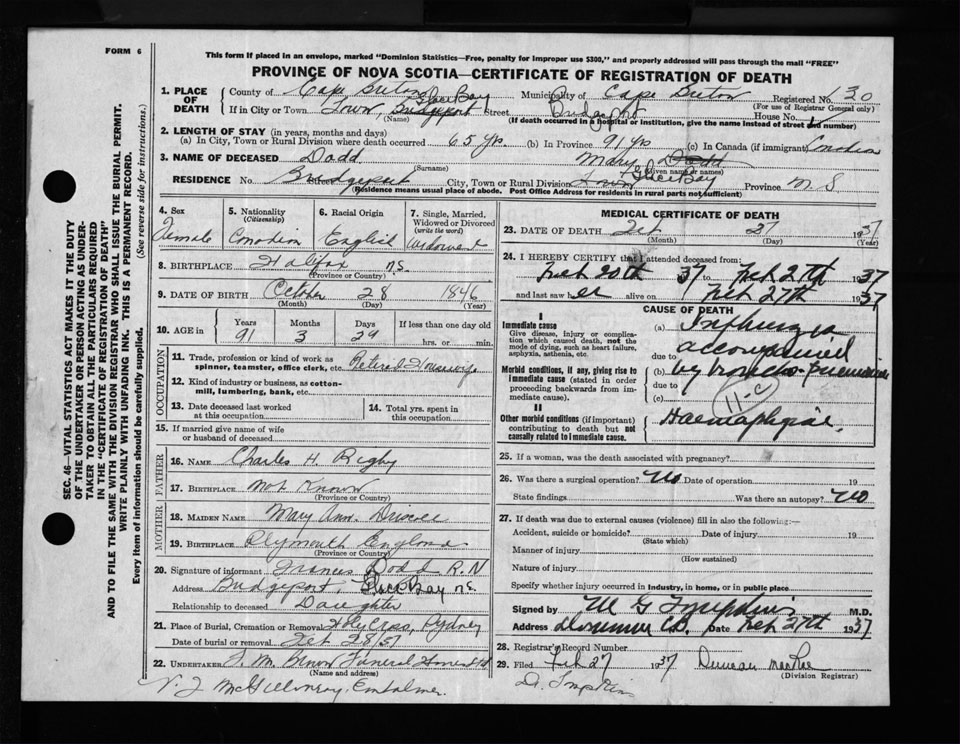 FORM 6
This form if placed in an envelope, marked "Dominion Statistics—Free, penalty for improper use $300," and properly addressed will pass through the mail "FREE"
PROVINCE OF NOVA SCOTIA—CERTIFICATE OF REGISTRATION OF DEATH
SEC. 46—VITAL STATISTICS ACT MAKES IT THE DUTY
OF THE UNDERTAKER OR PERSON ACTING AS UNDER-
TAKER TO OBTAIN ALL THE PARTICULARS REQUIRED
IN THE "CERTIFICATE OF REGISTRATION OF DEATH"
AND TO FILE THE SAME WITH THE DIVISION REGISTRAR WHO SHALL ISSUE THE BURIAL PERMIT.
WRITE PLAINLY WITH UNFADING INK. THIS IS A PERMANENT RECORD.
Every item of information should be carefully supplied. (See reverse side for instructions.)
1. PLACE OF DEATH County of Cape Breton Municipality of Cape Breton Registered No. 30
(For use of Registrar General only)
If in City or Town Town Bridgeport Glace Bay Street Bridgeport House No.
(Name) (If death occurred in a hospital or institution, give the name instead of street and number)
2. LENGTH OF STAY (in years, months and days)
(a) In City, Town or Rural Division where death occurred 65 yrs. (b) In Province 91 yrs (c) In Canada (if immigrant) Canadian
3. NAME OF DECEASED Dodd Mary Dodd
(Surname) (Given name or names)
RESIDENCE No. Bridgeport Street City, Town or Rural Division Town Glace Bay Province N S
(Residence means usual place of abode. Post Office Address for residents in rural parts not sufficient)
4. Sex Female
5. Nationality (Citizenship) Canadian
6. Racial Origin English
7. Single, Married, Widowed or Divorced (write the word) Widowed
8. BIRTHPLACE Halifax NS.
(Province or Country)
9. DATE OF BIRTH October 28 1846
(Month) (Day) (Year)
10. AGE IN Years 91 Months 3 Days 29 If less than one day old hrs. or min.
OCCUPATION
11. Trade, profession or kind of work as spinner, teamster, office clerk, etc. Retired Housewife
12. Kind of industry or business, as cotton-mill, lumbering, bank, etc.
13. Date deceased last worked at this occupation
14. Total yrs. spent in this occupation
15. If married give name of wife or husband of deceased
FATHER
16. NAME Charles H. Rigby
17. BIRTHPLACE Not Known
(Province or Country)
MOTHER
18. MAIDEN NAME Mary Ann. Driscoll
19. BIRTHPLACE Plymouth England
(Province or Country)
20. Signature of informant Frances Dodd R.N
Address Bridgeport, Glace Bay NS.
Relationship to deceased Daughter
21. Place of Burial, Cremation or Removal Holy Cross, Sydney
Date of burial or removal Feb 28/37
22. UNDERTAKER Funeral Home
(Name and address)
Embalmer
MEDICAL CERTIFICATE OF DEATH
23. DATE OF DEATH Feb 27 1937
(Month) (Day) (Year)
24. I HEREBY CERTIFY that I attended deceased from:
Feb 20th 37 to Feb 27th 1937
and last saw her alive on Feb 27th 1937
CAUSE OF DEATH
I
Immediate cause
Give disease, injury or complication which caused death, not the mode of dying, such as heart failure, asphyxia, asthenia, etc.
(a) Influenza
due to accompanied
Morbid conditions, if any, giving rise to immediate cause (stated in order proceeding backwards from immediate cause).
(b) by broncho-pneumonia
due to
(c) 11-C
II
Other morbid conditions (if important) contributing to death but not causally related to immediate cause.
25. If a woman, was the death associated with pregnancy?
26. Was there a surgical operation? No Date of operation 19
State findings Was there an autopsy? No
27. If death was due to external causes (violence) fill in also the following:—
Accident, suicide or homicide? Date of injury 19
(State which)
Manner of injury
(How sustained)
Nature of injury
Specify whether injury occurred in industry, in home, or in public place
Signed by M G Tompkins M.D.
Address Dominion C.B. Date Feb 27th 1937
28. Registrar's Record Number
29. Filed Feb 27 1937 Duncan MacRae
(Division Registrar)
D. Tompkins